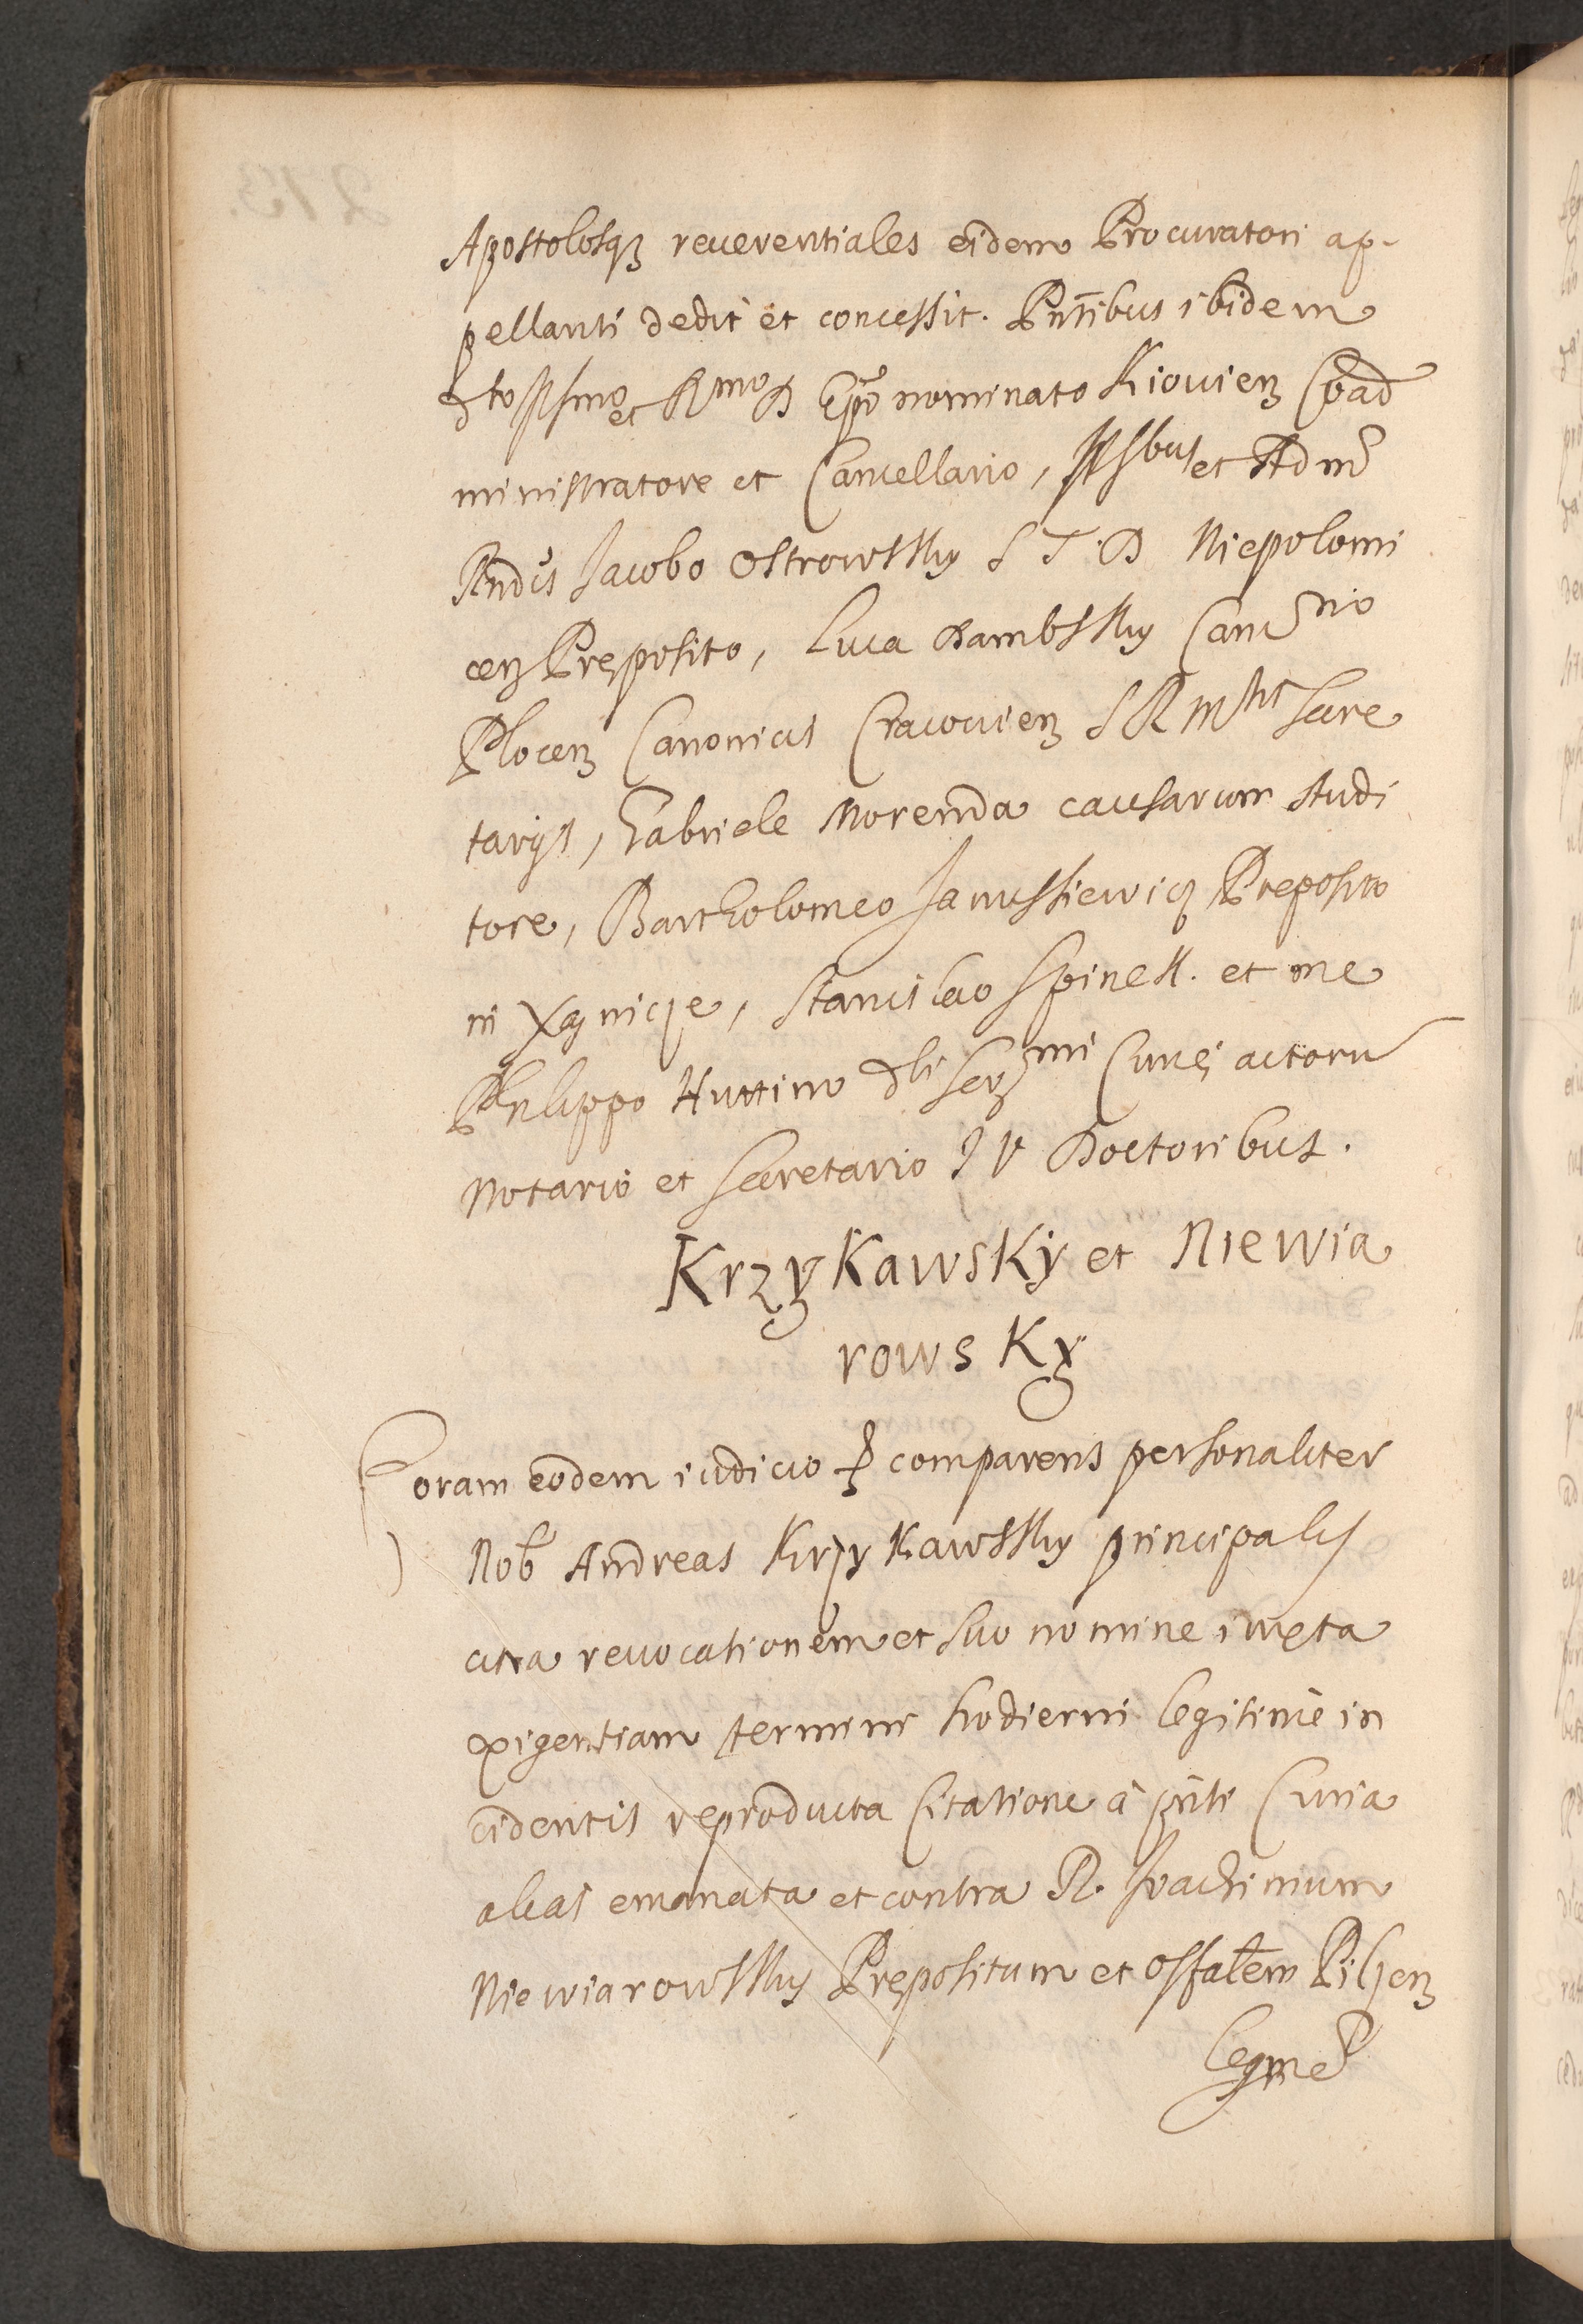 Apostolosq3 reuerentiales eidem Procuratori ap-
pellanti dedit et concessit. Pntibus ibidem
dto Illmo et Rmo D Epo nominato Kiouien Coad
ministratore et Cancellario, Illbus et Adm
Rndis Jacobo Ostrowsky S T. D Niepolomi
cen Preposito, Luca Dambsky Canc rio
Plocen Canonicis Cracouien S R Mtis Secre
tarijs, Gabriele Morenda causarum studi
tore, Bartholomeo Janussiewicz Preposito
in Xqnicze, Stanislao Spinek. et me
Philippo Huttino dti Serzmi Curie actoru
Notario et Secretario J V Doctoribus.
KrzyKawsKy et Niewia
rowsKy
Coram eodem iudicio p comparens personaliter
Nob Andreas KrzyKawsky principalis
citra reuocationem et suo nomine iuxta
exigentiam termini hodierni legitime in
cidentis reproducta Citatione à pnti Curia
alias emanata et contra R. Joachimum
Niewiarowsky Prepositum et offalem Pilzen
legme